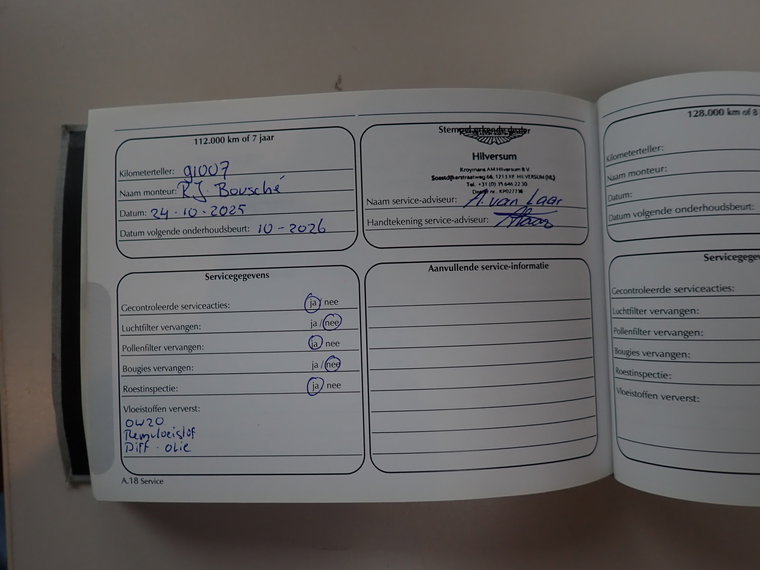 112.000 km of 7 jaar
Kilometerteller: 91007
Naam monteur: R.J. Bousché
Datum: 24-10-2025
Datum volgende onderhoudsbeurt: 10-2026
Hilversum
Kroymans AM Hilversum B.V.
Soestdijkerstraatweg 66, 1213 XE HILVERSUM (NL)
Naam service-adviseur: A. van Laar
Handtekening service-adviseur:
Servicegegevens
Gecontroleerde serviceacties: ja nee
Luchtfilter vervangen: ja / nee
Pollenfilter vervangen: ja nee
Bougies vervangen: ja / nee
Roestinspectie: ja nee
Vloeistoffen ververst:
0W20
Remvloeistof
Diff. olie
Aanvullende service-informatie
A.18 Service
128.000 km of 8
Kilometerteller:
Naam monteur:
Datum:
Datum volgende onderhoudsbeurt:
Servicegegev
Gecontroleerde serviceacties:
Luchtfilter vervangen:
Pollenfilter vervangen:
Bougies vervangen:
Roestinspectie:
Vloeistoffen ververst: